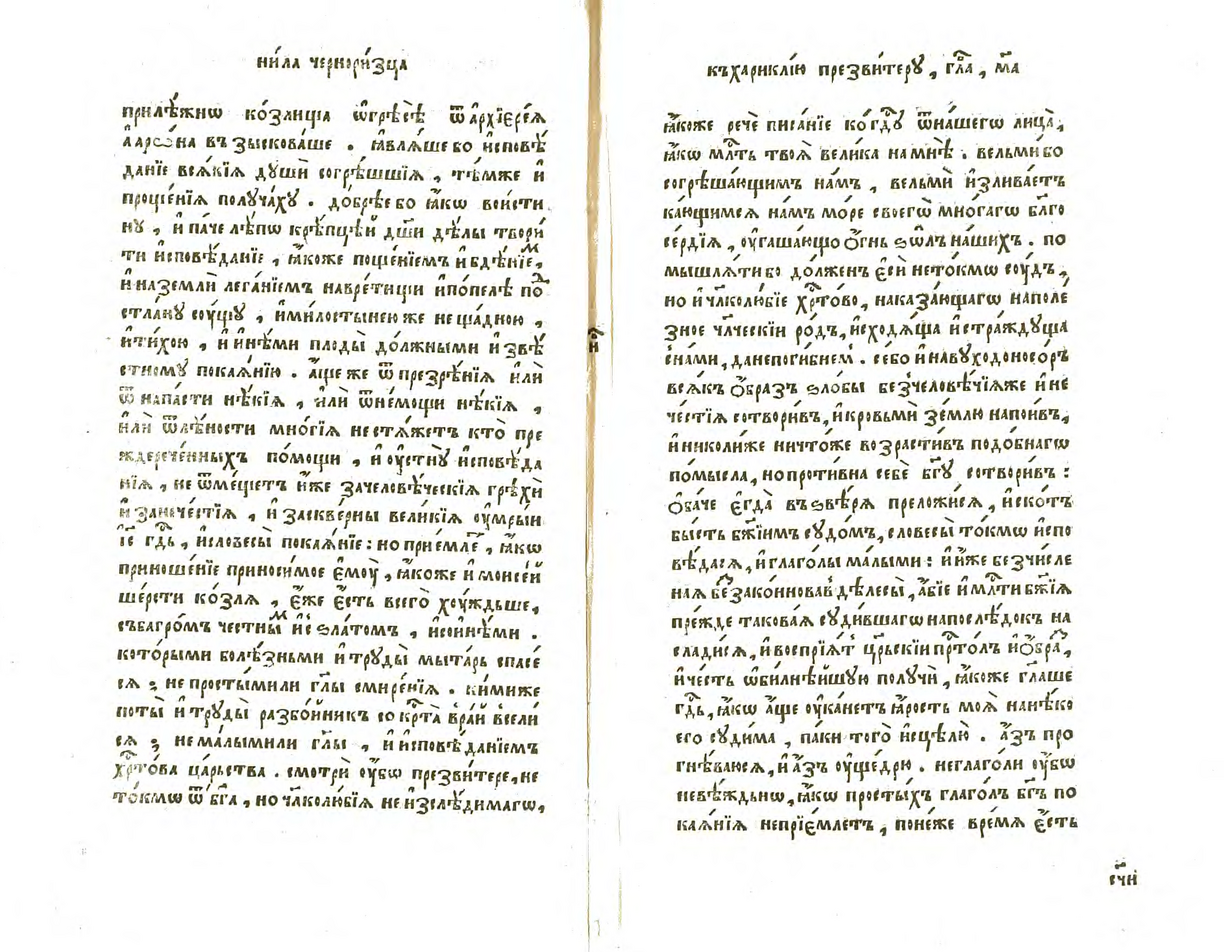 ни́ла черьнори́зца
прилѣ́жнѡ ко́злища ѡ҆грѣсѣ̀ ѿ а҆рхїере́ѧ
а҆арѡ́на въ зыскова́ше . ꙗ҆влѧ́ше бо и҆сповѣ́
данїе всѧ́кїѧ души̂ согрѣ́шшїѧ , тѣ́мже и҆
проще́нїѧ получа́хꙋ . до́брѣе бо ꙗ҆́кѡ вои́сти
нꙋ , и҆ па́че лѣ́пѡ крѣ́пцѣй дш҃и дѣ́лы твори́
ти и҆сповѣ́данїе , ꙗ҆́коже поще́нїемъ и҆ бдѣ́нїеⷨ,
и҆ на землѝ лега́нїемъ на вре́тищи и҆ по́пелѣ поⷣ
стлану сꙋ́щꙋ , и҆ ми́лостынею же не ща́дною ,
и҆ ти́хою , и҆ и҆нѣ́ми плоды̀ до́лжными и҆звѣ́
стному покаѧ́нїю . а҆́ще же ѿ презрѣ́нїѧ и҆лѝ
ѿ напа́сти нѣ́кїѧ , и҆лѝ ѿ не́мощи нѣ́кїѧ ,
и҆лѝ ѿ лѣ́ности мно́гїѧ не стѧ́жетъ кто̀ пре
ждерече́нныхъ по́мощи , и҆ ᲂу҆стнꙋ̀ и҆сповѣ́да
нїѧ , не ѿме́щетъ и҆́же за человѣ́ческїѧ грѣхѝ
и҆ за нече́стїѧ , и҆ за скве́рны вели́кїѧ ᲂу҆мры́й
і҆с гдⷭ҇ь , и҆ словесы̀ покаѧ́нїе : но прїе́млеⷮ , ꙗ҆́кѡ
приноше́нїе приноси́мое є҆мꙋ̀ , ꙗ҆́коже и҆ моисе́й
ше́рсти ко́злѧ , є҆́же є҆́сть всегѡ̀ хꙋ́ждьше,
съ багро́мъ че́стныⷨ и҆ с ѕла́томъ , и҆ со и҆нѣ́ми .
кото́рыми болѣ́зньми и҆ труды̀ мы́тарь спасе́
сѧ ; не просты́ми ли гл҃ы смире́нїѧ . ки́миже
поты̀ и҆ труды̀ разбо́йникъ со крⷭ҇та̀ в ра́й всели́
сѧ ; не ма́лыми ли гл҃ы , и҆ и҆сповѣ́данїемъ
хрⷭ҇то́ва ца́рьства . смотрѝ ᲂу҆́бѡ презви́тере, не
то́кмѡ ѿ бг҃а , но чл҃колю́бїѧ не и҆зслѣ́димагѡ,
и҃
къ харикли́ю презви́теру , гла҃ , м҃а
ꙗ҆́коже речѐ писа́нїе ко гдⷭ҇ꙋ ѿ на́шегѡ лица̀ ,
ꙗ҆́кѡ млⷭ҇ть твоѧ̀ вели́ка на мнѣ̀ . вельми́ бо
согрѣша́ющимъ на́мъ , вельмѝ и҆злива́етъ
ка́ющимсѧ на́мъ мо́ре своегѡ̀ мно́гагѡ бл҃го
се́рдїѧ , ᲂу҆гаша́ющо ѻ҆́гнь ѕѡ́лъ на́шихъ . по
мышлѧ́ти бо до́лженъ є҆сѝ не то́кмѡ сꙋ́дъ ,
но и҆ чл҃колю́бїе хрⷭ҇то́во , наказа́ющагѡ на поле́
зное чл҃ческїи ро́дъ, и҆ сходѧ́ща и҆ стра́ждꙋща
с на́ми, да не поги́бнем̾ . се́ бо и҆ навуходоно́соръ
всѧ́къ ѻ҆́бразъ ѕло́бы без̾человѣ́чїѧже и҆ не
че́стїѧ сотвори́въ, и҆ кровьмѝ зе́млю напои́въ,
и҆ николи́же ничто́же возрасти́въ подо́бнагѡ
по́мысла, но проти́вна себѐ бг҃ꙋ сотвори́въ :
ѻ҆ба́че є҆гда̀ въ ѕвѣ́рѧ преложи́сѧ , и҆ ско́тъ
бы́сть бж҃їимъ сꙋдо́мъ, словесы̀ то́кмѡ и҆спо
вѣ́дасѧ, и҆ глаго́лы ма́лыми : и҆ и҆́же безчи́сле
наѧ беⷥзако́нновав̾ дѣ́лесы̀, а҆́бїе и҆ млⷭ҇ти бж҃їѧ
пре́жде такова́ѧ сꙋди́вшагѡ напослѣ́докъ на
слади́сѧ, и҆ воспрїѧ́т̾ црⷭ҇ькїи прⷭ҇то́лъ и҆ ѻ҆́браⷥ,
и҆ че́сть ѡ҆били́ѣйшꙋю получѝ, ꙗ҆́коже гл҃аше
гдⷭ҇ь, ꙗ҆́кѡ а҆́ще ᲂу҆ка́нетъ ꙗ҆́рость моѧ̀ на нѣ́ко
его сꙋди́ма , па́ки того̀ и҆сцѣлю̀ . а҆́зъ про
гнѣ́ваюсѧ, и҆ а҆́зъ ᲂу҆ще́дрю . не глаго́ли ᲂу҆́бѡ
невѣ́ждьнѡ, ꙗ҆́кѡ просты́хъ глаго́лъ бг҃ъ по
каѧ́нїѧ не прїе́млетъ , поне́же вре́мѧ є҆́сть
сч҃и